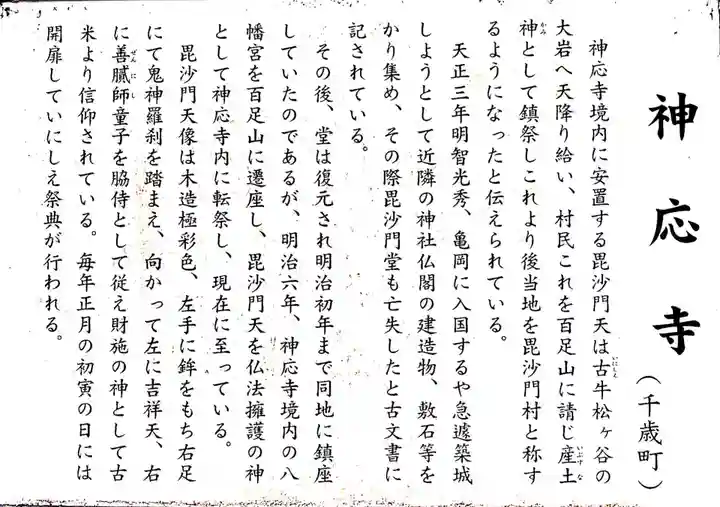 神応寺（千歳町）
神応寺境内に安置する毘沙門天は古牛松ヶ谷の
大岩へ天降り給い、村民これを百足山に請じ産土
神として鎮祭しこれより後当地を毘沙門村と称す
るようになったと伝えられている。
天正三年明智光秀、亀岡に入国するや急遽築城
しようとして近隣の神社仏閣の建造物、敷石等を
かり集め、その際毘沙門堂も亡失したと古文書に
記されている。
その後、堂は復元され明治初年まで同地に鎮座
していたのであるが、明治六年、神応寺境内の八
幡宮を百足山に遷座し、毘沙門天を仏法擁護の神
として神応寺内に転祭し、現在に至っている。
毘沙門天像は木造極彩色、左手に鉾をもち右足
にて鬼神羅刹を踏まえ、向かって左に吉祥天、右
に善膩師童子を脇侍として従え財施の神として古
来より信仰されている。毎年正月の初寅の日には
開扉していにしえ祭典が行われる。